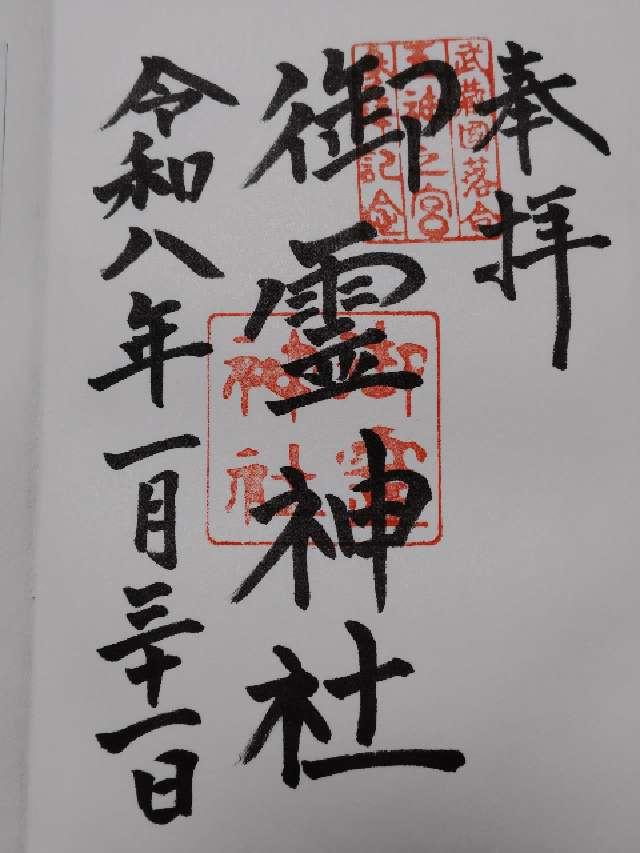 奉拝
武蔵國落合
五神之宮
参拝記念
御霊神社
御霊
神社
令和八年一月三十一日